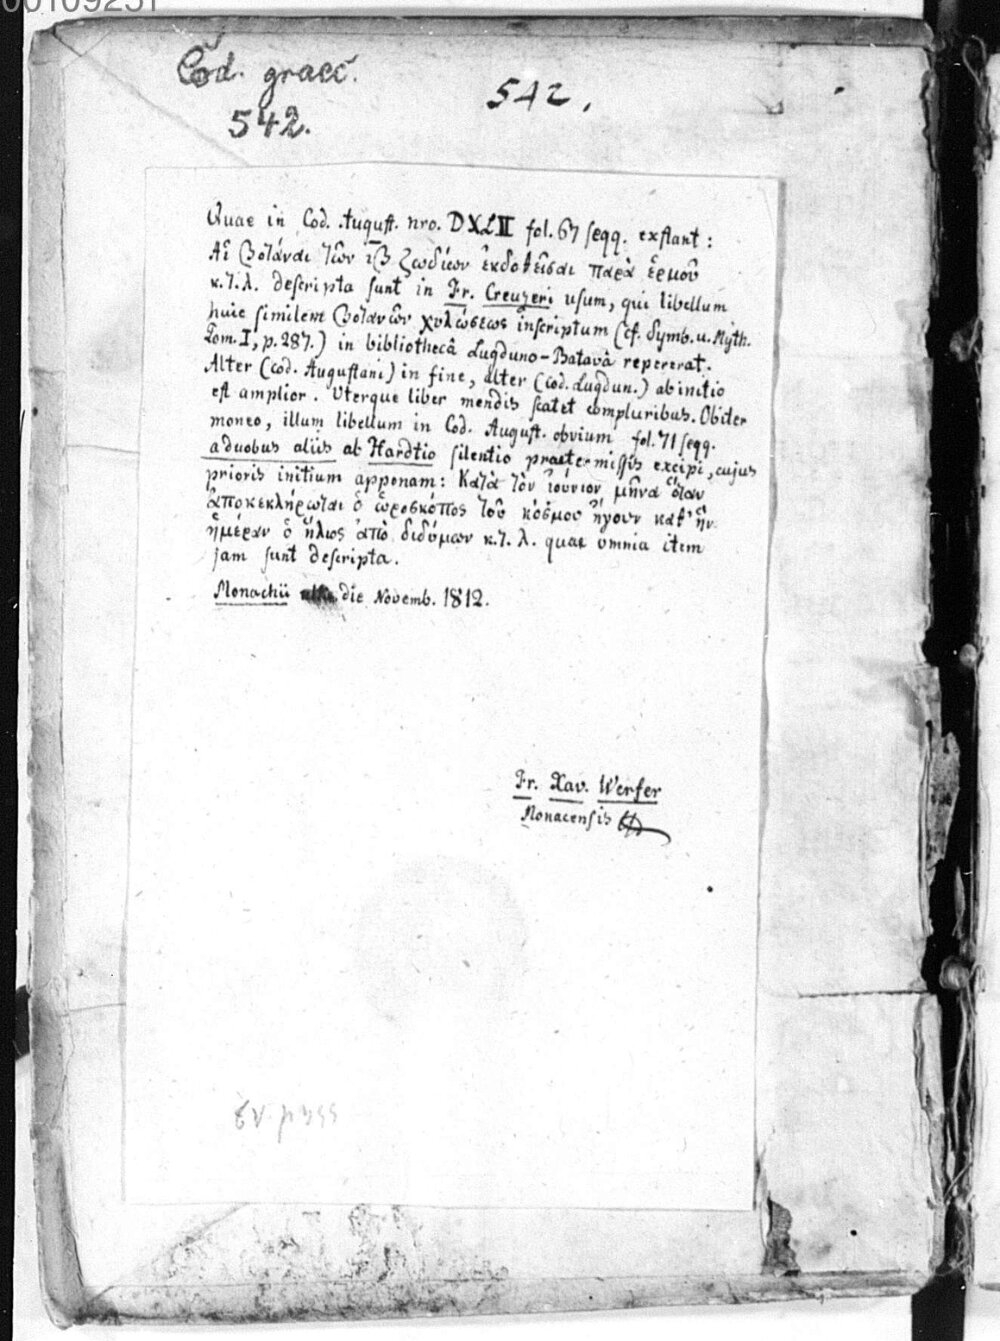 00109251
Cod. graec.
542.
542.
Quae in Cod. August. nro. DXLII fol. 67 seqq. exstant:
Αἱ βοτάναι τῶν ιβ ζωδίων ἐκδοθεῖσαι παρὰ ἑρμοῦ
κ.τ.λ. descripta sunt in Fr. Creuzeri usum, qui libellum
huic similem βοτανῶν χυλώσεως inscriptum (cf. Symb. u. Myth.
Tom. I, p. 287.) in bibliothecâ Lugduno-Batavâ repererat.
Alter (cod. Augustani) in fine, alter (cod. Lugdun.) ab initio
est amplior. Uterque liber mendis scatet compluribus. Obiter
moneo, illum libellum in Cod. August. obvium fol. 71 seqq.
a duobus aliis ab Hardtio silentio praetermissis excipi, cujus
prioris initium apponam: Κατὰ τὸν ἰούνιον μῆνα ὅταν
ἀποκεκλήρωται ὁ ὡροσκόπος τοῦ κόσμου ἤγουν καθ' ἣν
ἡμέραν ὁ ἥλιος ἀπὸ διδύμων κ.τ.λ. quae omnia item
jam sunt descripta.
Monachii die Novemb. 1812.
Fr. Xav. Werfer
Monacensis